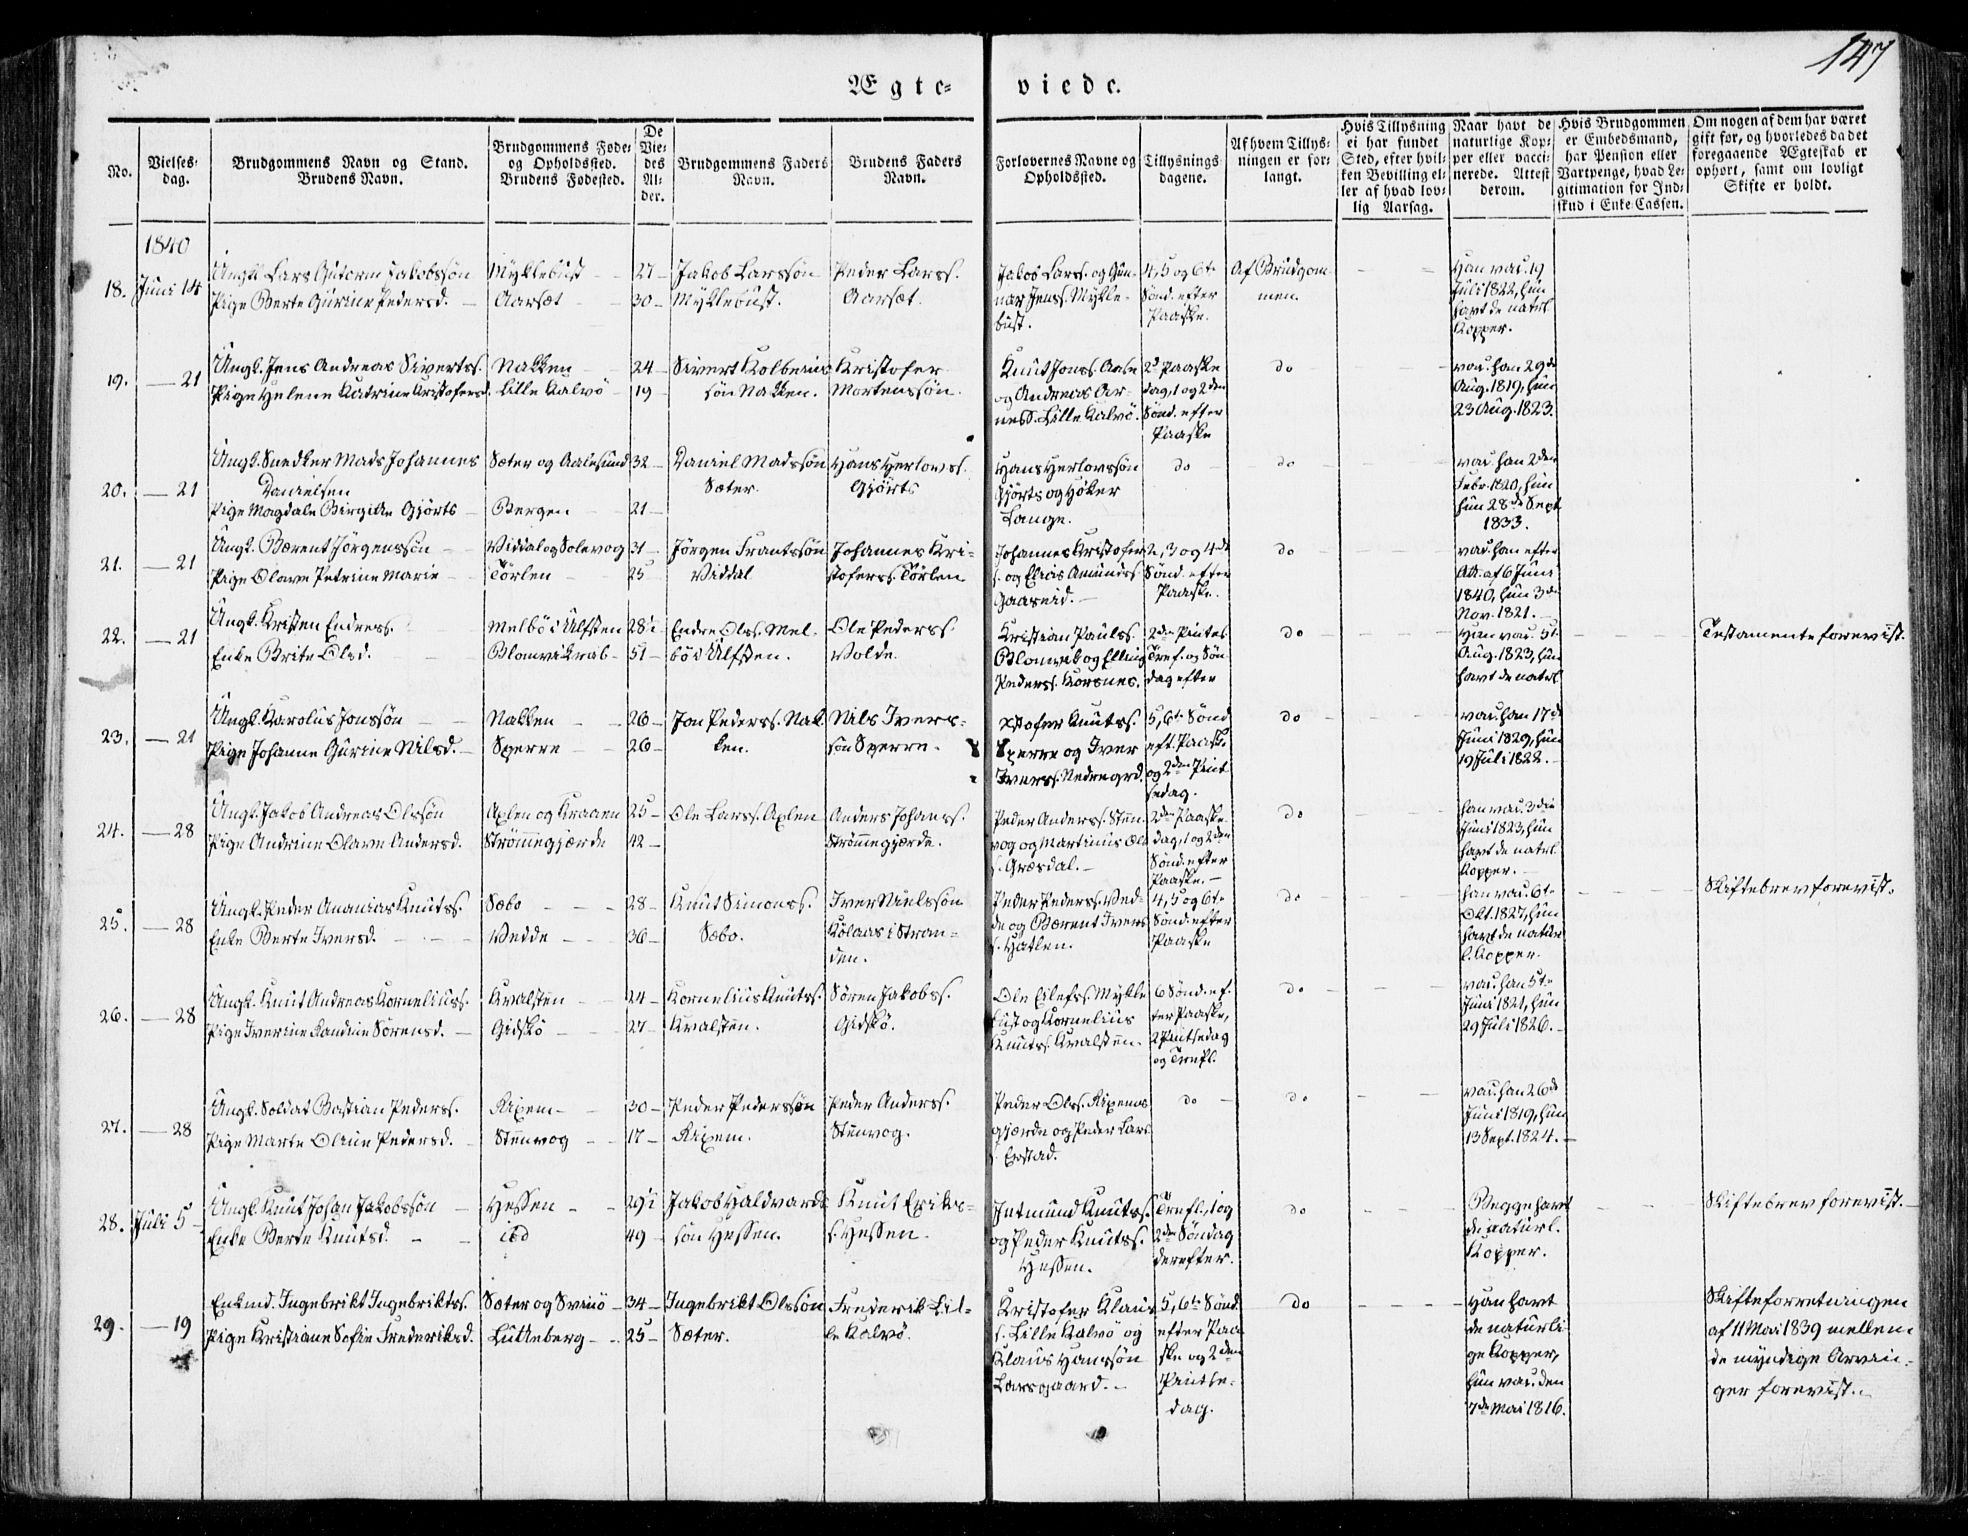 147
Ægte-
viede.
No.
Vielses-
dag.
Brudgommens Navn og Stand.
Brudens Navn.
Brudgommens Føde-
og Opholdssted.
Brudens Fødested.
De
Vie-
des
Al-
der.
Brudgommens Faders
Navn.
Brudens Faders
Navn.
Forlovernes Navne og
Opholdssted.
Tillysnings-
dagene.
Af hvem Tillys-
ningen er for-
langt.
Hvis Tillysning
ei har fundet
Sted, efter hvil-
ken Bevilling el-
ler af hvad lov-
lig Aarsag.
Naar havt de
naturlige Kop-
per eller vacci-
nerede. Attest
derom.
Hvis Brudgommen
er Embedsmand,
har Pension eller
Vartpenge, hvad Le-
gitimation for Ind-
skud i Enke-Cassen.
Om nogen af dem har været
gift før, og hvorledes da det
foregaaende Ægteskab er
ophørt, samt om lovligt
Skifte er holdt.
1840
18. Juni 14
Ungk. Lars Gutorm Jakobssøn
Pige Berte Gurine Pedersd.
Myklebust
Aarset
27
30
Jakob Larssøn
Myklebust.
Peder Larss.
Aarset.
Jakob Larss. og Gun-
nar Jenss. Mykle-
bust.
4, 5 og 6te
Sønd. efter
Paaske.
Af Brudgom-
men.
Han vac. 19
Juli 1822, hun
havt de naturl.
Kopper.
19. — 21
Ungk. Jens Andreas Sivertss.
Pige Helene Katrine Kristofersd.
Nakken
Lille Kalvö
24
19
Sivert Kolbeins
søn Nakken.
Kristofer
Mortenssøn.
Knut Jonss. Aase
og Andreas Ar-
ness. Lille Kalvö.
2d Paaske
dag, 1 og 2den
Sønd. efter
Paaske
do
vac. han 29de
Aug. 1819, hun
23 Aug. 1823.
20. — 21
Ungk. Snedker Mads Johannes
Danielsen
Pige Magdale Birgitte Gjörts
Sæter og Aalesund
Bergen
32
21
Daniel Madssøn
Sæter.
Hans Herlovss.
Gjörts
Hans Herlovssøn
Gjörts og Höker
Lange.
do
do
vac. han 2den
Febr. 1820, hun
hun 28de Sept
1833.
21. — 21
Ungk. Bærent Jörgenssön
Pige Olave Petrine Marie
Viddal og Solevog
Törlen
31
25
Jörgen Frantssön
Viddal
Johannes Kri-
stoferss. Törlen
Johannes Kristofer
s. og Elias Amundss.
Gaaseid.
2, 3 og 4de
Sønd. efter
Paaske.
do
vac. han efter
Att. af 6 Juni
1840, hun 3de
Nov. 1821.
22. — 21
Ungk. Kristen Endress.
Enke Brite Olsd.
Melbö i Ulfsten
Blomvikreb
28½
51
Endre Olss. Mel-
bö i Ulfsten.
Ole Pederss.
Volde.
Kristian Paulss.
Blomreb og Elling
Pederss. Korsnes.
2den Pintes
Tref. og Søn-
dag efter
do
Han vac. 5te
Aug. 1823, hun
havt de naturl.
Testamente forevist.
23. — 21
Ungk. Karolus Jonssön
Pige Johanne Gurine Nilsd.
Nakken
Sperre
26
26
Jon Pederss. Nak-
ken.
Nils Ivers-
søn Sperre.
Xstofer Knutss.
Sperre og Iver
Iverss. Nedregrd.
5, 6te Sønd
eft. Paaske
og 2den Pint
sedag.
do
vac. han 17de
Juni 1829, hun
19 Juli 1822.
24. — 28
Ungk. Jakob Andreas Olssön
Pige Andrine Olave Andersd.
Axlen og Kraaen
Strömmegjærde
25
42
Ole Larss. Axlen
Anders Johanss.
Strömmegjærde.
Peder Anderss. Stun-
vog og Martinus Ole
s. Græsdal.
2den Paaske
dag, 1 og 2den
Sønd. efter
Paaske.
do
han vac. 3die
Juni 1823, hun
havt de naturl.
Kopper.
25. — 28
Ungk. Peder Ananias Knutss.
Enke Berte Iversd.
Sæbo
Vedde
28
36
Knut Simonss.
Sæbo.
Iver Nielssøn
Kolaas i Stran-
den.
Peder Pederss. Ved-
de og Bærent Ivers
s. Hatlen.
4, 5 og 6te
Sønd. efter
Paaske
do
han vac. 6te
Okt. 1827, hun
havt de natur
l. Kopper.
Skiftebrev forevist.
26. — 28
Ungk. Knut Andreas Korneliuss.
Pige Iverine Randine Sorensd.
Kvalsten
Gidskö
24
27
Kornelius Knutss.
Kvalsten.
Sören Jakobss.
Gidskö.
Ole Eilefss. Mykle
bust og Kornelius
Knutss. Kvalsten.
6 Sønd. ef-
ter Paaske,
2 Pintsedag
og Trefl.
do
vac. han 5te
Juni 1821, hun
29 Juli 1826.
27. — 28
Ungk. Soldat Bastian Pederss.
Pige Marte Oline Pedersd.
Rixem
Stunvog
30
17
Peder Pederssøn
Rixem.
Peder Anderss.
Stunvog.
Peder Olss. Rixems
gjærde og Peder Lars
s. Emstad.
do
do
vac. han 26de
Juni 1819, hun
13 Sept. 1824.
28. Juli 5
Ungk. Knut Johan Jakobssön
Enke Berte Knutsd.
Hessen
ibd
29½
49
Jakob Haldvards
søn Hessen.
Knut Eriks-
s. Hessen.
Intmund Knutss.
og Peder Knutss.
Hessen.
Trefl., 1 og
2den Söndag
derefter.
do
Begge havt
de naturl.
Kopper.
Skiftebrev forevist.
29. — 19
Enkmd. Ingebrikt Ingebriktss.
Pige Kristiane Sofie Frederiksd.
Sæter og Svinö
Lutteberg
34
25
Ingebrikt Olssön
Sæter.
Frederik Lil-
le Kalvö.
Kristofer Klaus
s. Lille Kalvö og
Klaus Hanssøn
Larsgaard.
5, 6te Sønd.
efter Paa-
ske og 2den
Pintse-
dag.
do
Han havt
de naturli-
ge Kopper,
hun vac. den
7de Mai 1816.
Skifteforretningen
af 11 Mai 1839 mellem
de myndige Arvin-
ger forevist.